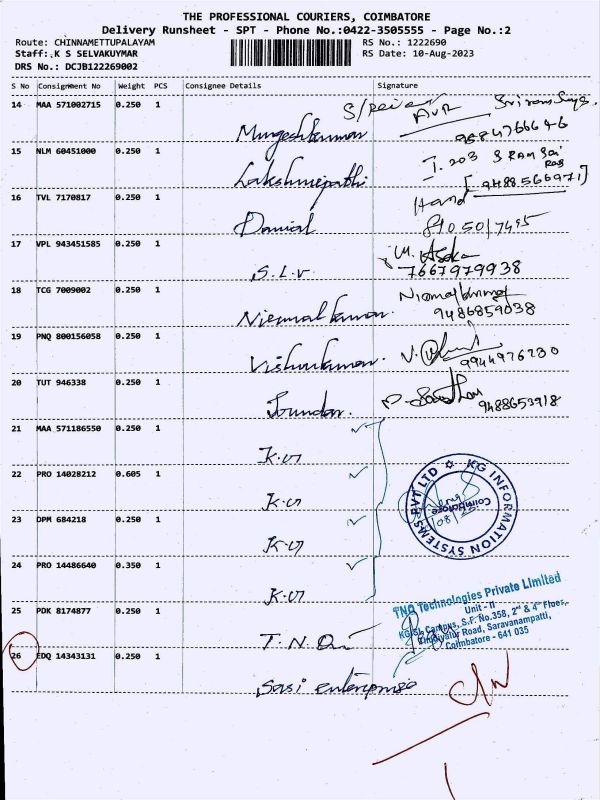 THE PROFESSIONAL COURIERS, COIMBATORE
Delivery Runsheet - SPT - Phone No.:0422-3505555 - Page No.:2
Route: CHINNAMETTUPALAYAM RS No.: 1222690
Staff: K S SELVAKUMAR RS Date: 10-Aug-2023
DRS No.: DCJB122269002
S No Consignment No Weight PCS Consignee Details Signature
14 MAA 571002715 0.250 1 Murgeshkumar AVR 9584766646
15 NLM 60451000 0.250 1 Lakshmipathi J. 203 S RAM Sai [9488566971]
16 TVL 7170817 0.250 1 Danial Hand
17 VPL 943451585 0.250 1 S.L.V M. Asoka 7667979938
18 TCG 7009002 0.250 1 Niermalkumar. Niermalkumar 9486859038
19 PNQ 800156058 0.250 1 Vishnukumar. 9944976230
20 TUT 946338 0.250 1 9488653918
21 MAA 571186550 0.250 1 K.G
22 PRO 14028212 0.605 1 K.G
23 DPM 684218 0.250 1 K.G
24 PRO 14486640 0.350 1 K.G
KG INFORMATION SYSTEMS PVT LTD
Coimbatore
25 PDK 8174877 0.250 1 T.N.Q
TNQ Technologies Private Limited
Unit - II
KGISL Campus, S.F. No.358, 2nd & 4th Floor,
Road, Saravanampatti,
Coimbatore - 641 035
26 EDQ 14343131 0.250 1 Sasi enterprises